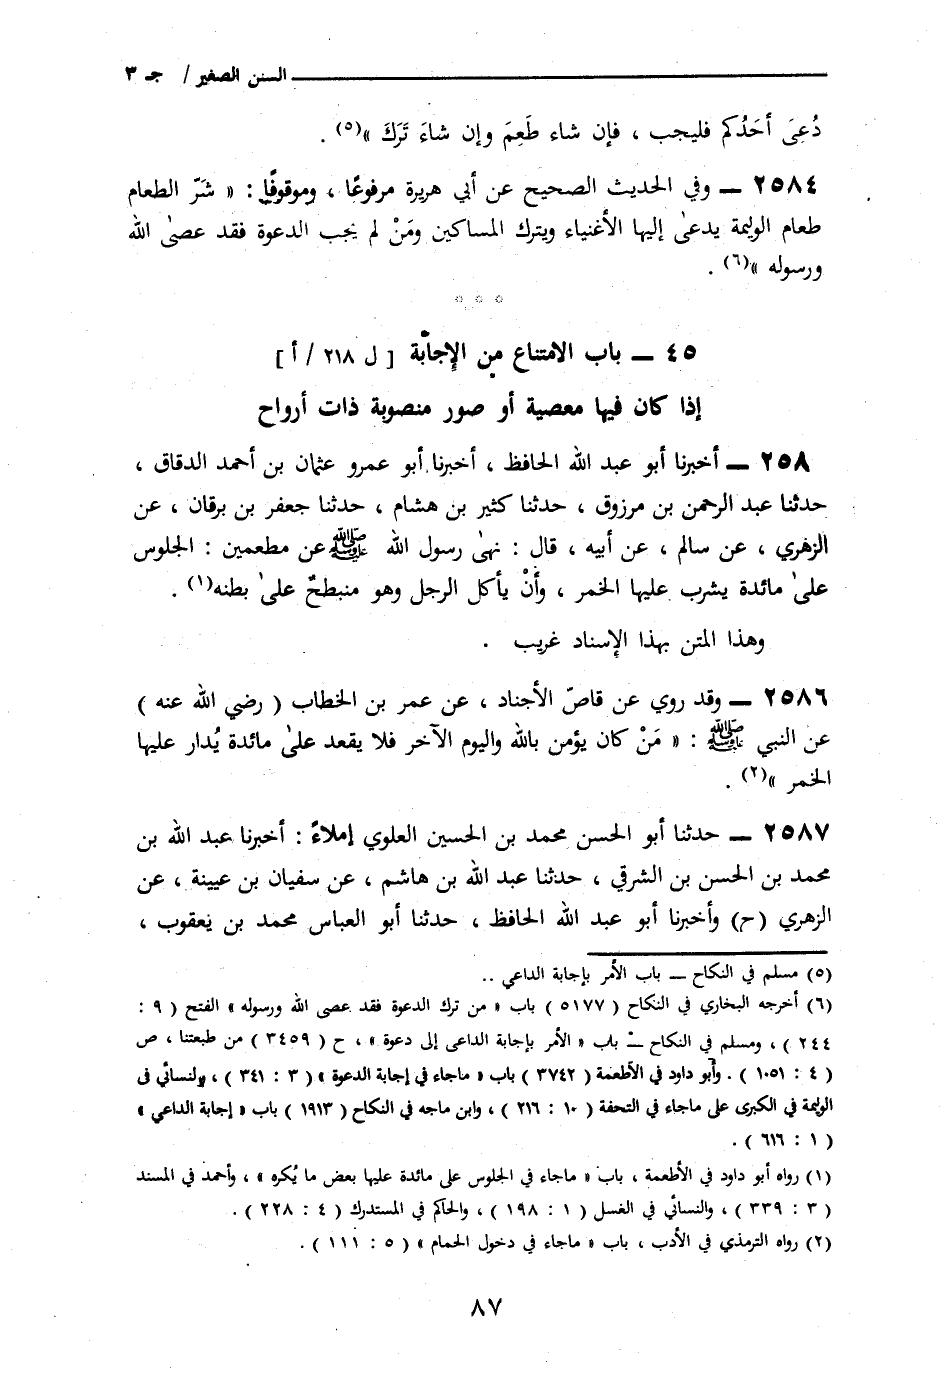 السنن الصغير / جـ ٣
دُعِيَ أحَدُكم فليجب ، فإن شاء طَعِمَ وإن شاءَ تَرَكَ »(٥) .
٢٥٨٤ ــ وفي الحديث الصحيح عن أبي هريرة مرفوعًا ، وموقوفًا : « شَرّ الطعام
طعام الوليمة يدعىٰ إليها الأغنياء ويترك المساكين ومَنْ لم يجب الدعوة فقد عصىٰ الله
ورسوله »(٦) .
٤٥ ــ باب الامتناع من الإجابة [ ل ٢١٨ / أ ]
إذا كان فيها معصية أو صور منصوبة ذات أرواح
٢٥٨ ــ أخبرنا أبو عبد الله الحافظ ، أخبرنا أبو عمرو عثمان بن أحمد الدقاق ،
حدثنا عبد الرحمن بن مرزوق ، حدثنا كثير بن هشام ، حدثنا جعفر بن برقان ، عن
الزهري ، عن سالم ، عن أبيه ، قال : نهىٰ رسول الله ﷺ عن مطعمين : الجلوس
علىٰ مائدة يشرب عليها الخمر ، وأنْ يأكل الرجل وهو منبطحٌ علىٰ بطنه(١) .
وهذا المتن بهذا الإسناد غريب .
٢٥٨٦ ــ وقد روي عن قاصّ الأجناد ، عن عمر بن الخطاب ( رضي الله عنه )
عن النبي ﷺ : « مَنْ كان يؤمن بالله واليوم الآخر فلا يقعد علىٰ مائدة يُدار عليها
الخمر »(٢) .
٢٥٨٧ ــ حدثنا أبو الحسن محمد بن الحسين العلوي إملاءً : أخبرنا عبد الله بن
محمد بن الحسن بن الشرقي ، حدثنا عبد الله بن هاشم ، عن سفيان بن عيينة ، عن
الزهري (ح) وأخبرنا أبو عبد الله الحافظ ، حدثنا أبو العباس محمد بن يعقوب ،
(٥) مسلم في النكاح ــ باب الأمر بإجابة الداعي ..
(٦) أخرجه البخاري في النكاح ( ٥١٧٧ ) باب « من ترك الدعوة فقد عصى الله ورسوله » الفتح ( ٩ :
٢٤٤ ) ، ومسلم في النكاح ــ باب « الأمر بإجابة الداعى إلى دعوة » ، ح ( ٣٤٥٩ ) من طبعتنا ، ص
( ٤ : ١٠٥١ ) . وأبو داود في الأطعمة ( ٣٧٤٢ ) باب « ماجاء في إجابة الدعوة » ( ٣ : ٣٤١ ) ، والنسائي فى
الوليمة في الكبرى على ماجاء في التحفة ( ١٠ : ٢١٦ ) ، وابن ماجه في النكاح ( ١٩١٣ ) باب « إجابة الداعي »
( ١ : ٦١٦ ) .
(١) رواه أبو داود في الأطعمة ، باب « ماجاء في الجلوس على مائدة عليها بعض ما يُكره » ، وأحمد في المسند
( ٣ : ٣٣٩ ) ، والنسائي في الغسل ( ١ : ١٩٨ ) ، والحاكم في المستدرك ( ٤ : ٢٢٨ ) .
(٢) رواه الترمذي في الأدب ، باب « ماجاء في دخول الحمام » ( ٥ : ١١١ ) .
٨٧